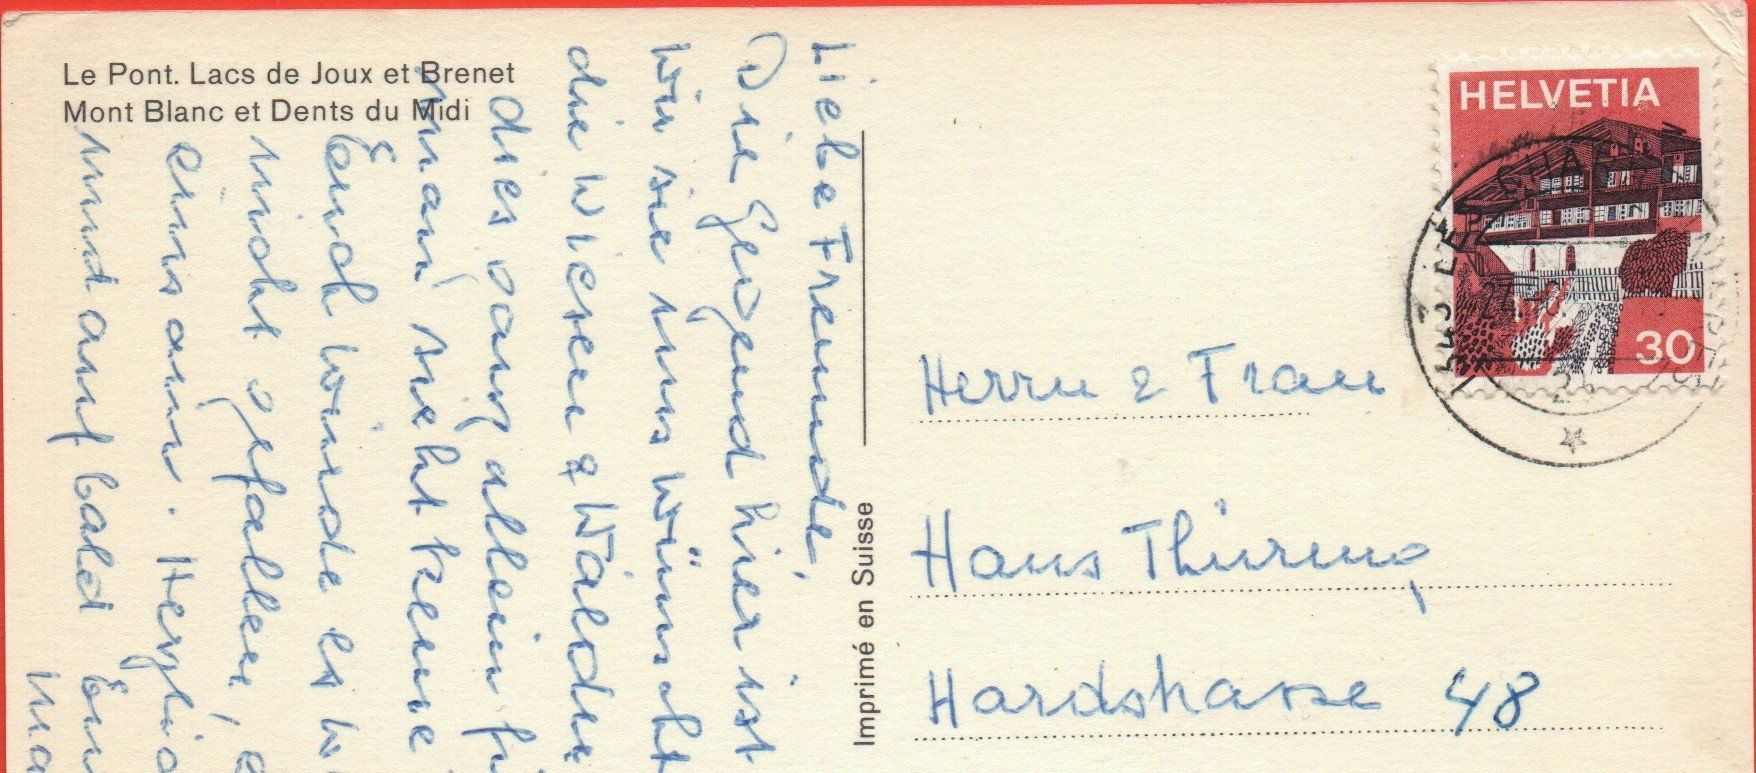 Le Pont. Lacs de Joux et Brenet
Mont Blanc et Dents du Midi
Liebe Freunde,
Die Gegend hier ist
wir sie uns wünscht
die Wiesen & Wälder
dies ganz allein fü
man sieht keine
Euch würde es
nicht gefallen,
eins am. Herzlic
und auf bald
Imprimé en Suisse
HELVETIA
30
Herrn & Frau
Hans Thüring
Hardstrasse 48